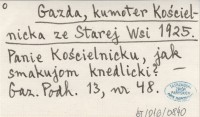 o Gazda, kumoter Kościel-
nicka ze Starej Wsi 1925.
Panie Kościelnicku, jak
smakujom knedlicki? —
Gaz. Podh. 13, nr 48.